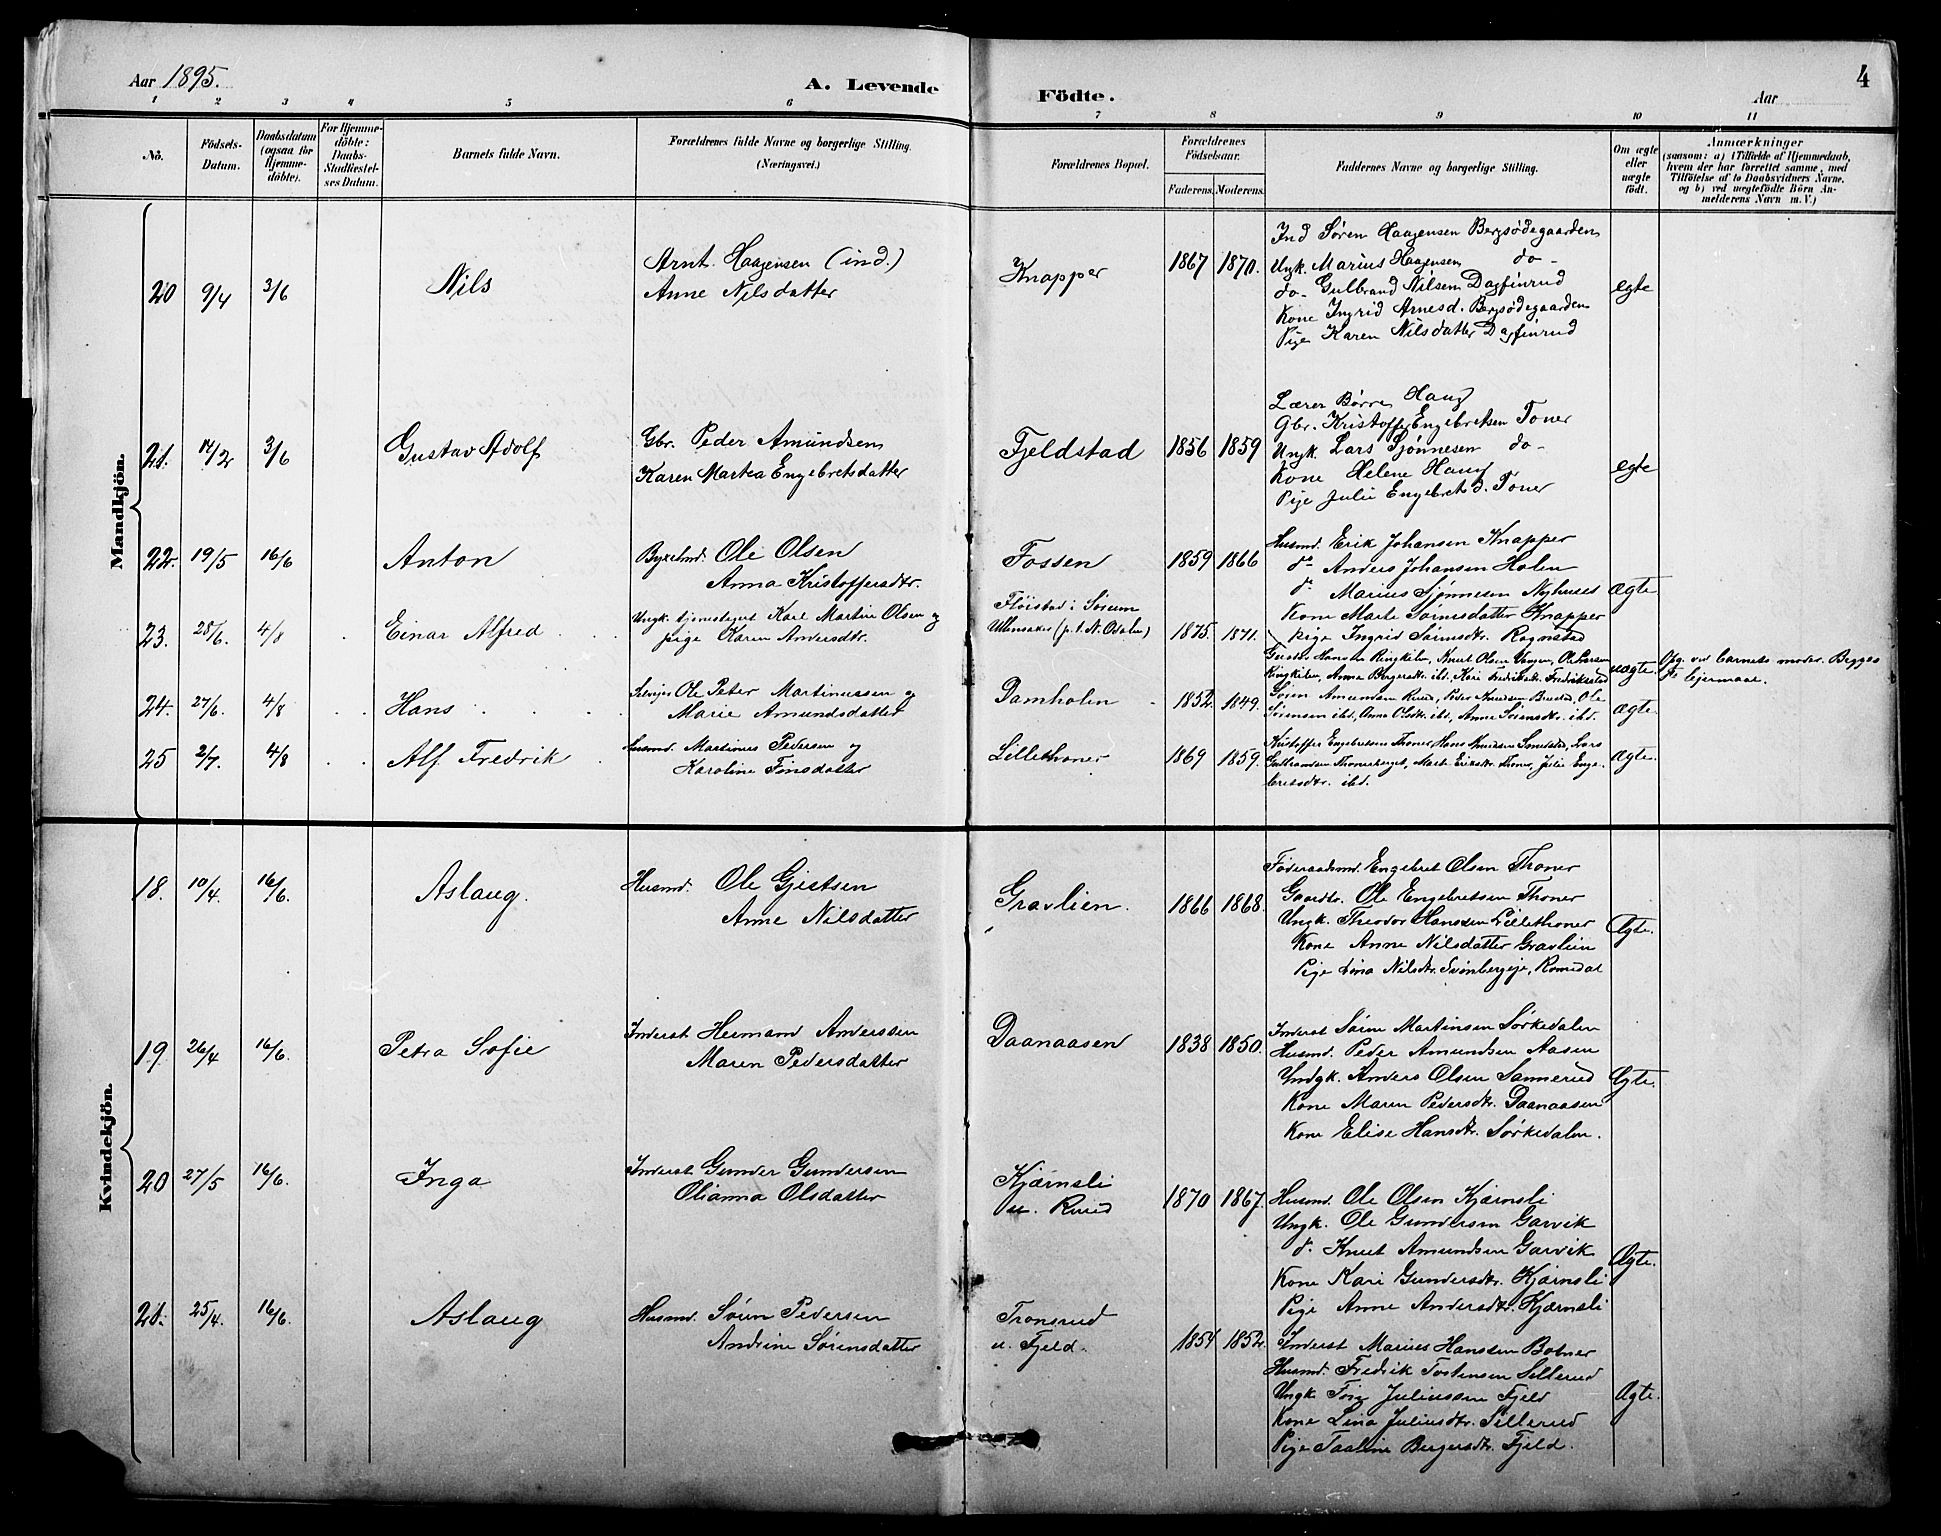 Aar 1895.
A. Levende Födte.
Aar
4
1 2 3 4 5 6 7 8 9 10 11
No.
Födsels-Datum.
Daabsdatum (ogsaa for Hjemmedöbte).
For Hjemmedöbte: Daabs-Stadfæstelses Datum.
Barnets fulde Navn.
Forældrenes fulde Navne og borgerlige Stilling. (Næringsvei.)
Forældrenes Bopæl.
Forældrenes Födselsaar.
Faderens. Moderens.
Faddernes Navne og borgerlige Stilling.
Om ægte eller uægte födt.
Anmærkninger
(saasom: a) i Tilfælde af Hjemmedaab, hvem der har forrettet samme, med Tilföielse af to Daabsvidners Navne, og b) ved uægtefödte Börn Anmelderens Navn m. V.)
Mandkjön.
20 9/4 3/6 Nils
Arnt Haagensen (ind.)
Anne Nilsdatter
Knapper 1867 1870.
Ind Søren Haagensen Bergsødegaarden
Ungk. Marius Haagensen do-
do- Gulbrand Nilsen Dagfinrud
Kone Ingrid Arnesd. Bergsødegaarden
Pige Karen Nilsdatter Dagfinrud
egte
21. 14/2 3/6 Gustav Adolf
Gbr. Peder Amundsen
Karen Martea Engebretsdatter
Fjeldstad 1856 1859
Lærer Børre Haug
Gbr. Kristoffer Engebretsen Toner
Ungk Lars Sjønnesen do-
Kone Helene Haug
Pige Julie Engebretsd. Toner
egte
22. 19/5 16/6 Anton
Byxelmd. Ole Olsen
Anna Kristoffersdtr.
Fossen 1859 1866
Husmd. Erik Johansen Knapper
do Anders Johansen Holen
do Marius Sjønnesen Nyhuses
Kone Marte Sørnesdatter Knapper
pige Ingrid Sørnsdtr. Rognstad
Ægte
23. 28/6. 4/8 Einar Alfred
Ungk. tjenestegut Karl Martin Olsen og
pige Karen Andersdtr.
Fløistad i Sørum
Ullensaker (p.t. N. Odalen) 1875. 1871.
Hansen Ringkilen, Knut Olsen Vangen, Ole Larsen
Ringkilen, Anna Bergersdtr. ibd., Kari Fredriksdtr. Fredriksstad
uægte.
Opg. ved barnets moder. Begges
1ste Leiermaal.
24. 27/6. 4/8 Hans
Selveier Ole Peter Martinussen og
Marie Amundsdatter
Damholen 1852. 1849.
Søren Amundsen Ruud, Peder Knudsen Brustad, Ole
Sørensen ibd., Anne Olsdtr. ibd., Anne Sørensdtr. ibd.
Ægte.
25 2/7. 4/8 Alf Fredrik
Husmd. Martinus Pedersen og
Karoline Finsdatter
Lillethoner 1869 1859.
Kristoffer Engebretsen Thoner, Hans Knudsen Smedstad, Lars
Gulbrandsen Thonerberget, Marte Eriksdtr. Thoner, Julie Enge-
bretsdtr. ibd.
Ægte.
Kvindekjön.
18. 10/4. 16/6. Aslaug.
Husmd. Ole Gjestsen
Anne Nilsdatter
Gravlien. 1866 1868.
Føderaadsmd. Engebret Olsen Thoner
Gaardbr. Ole Engebretsen Thoner
Ungk. Theodor Hanssen Lillethoner
Kone Anne Nilsdatter Gravlien
Pige Lina Nilsdtr. Svinbergeje, Romedal
Ægte.
19. 26/4 16/6. Petra Sofie
Inderst Hermand Anderssen
Maren Pedersdatter
Daanaasen 1838 1850.
Inderst Sørin Martinsen Sørkedalen
Husmd. Peder Amundsen Aasen
Undgk. Anders Olsen Sannerud
Kone Maren Pedersdtr. Daanaasen
Kone Elise Hansdtr. Sørkedalen.
Ægte.
20 27/5 16/6. Inga
Inderst Gunder Gundersen
Olianna Olsdatter
Kjærnsli
u. Ruud 1870 1867.
Husmd. Ole Olsen Kjærnsli
Ungk. Ole Gundersen Garvik
d. Knut Amundsen Garvik
Kone Kari Gundersdtr. Kjærnsli
Pige Anne Andersdtr. Kjærnsli
Ægte.
21. 25/4. 16/6. Aslaug
Husmd. Søren Pedersen
Andrine Sørensdatter
Tronsrud
u. Fjeld. 1854 1852.
Inderst Marius Hanssen Botner
Husmd. Fredrik Tostensen Sillerud
Ungk Tom Juliussen Fjeld
Kone Lina Juliusdtr. Sillerud
Pige Taaline Bergersdtr. Fjeld.
Ægte.